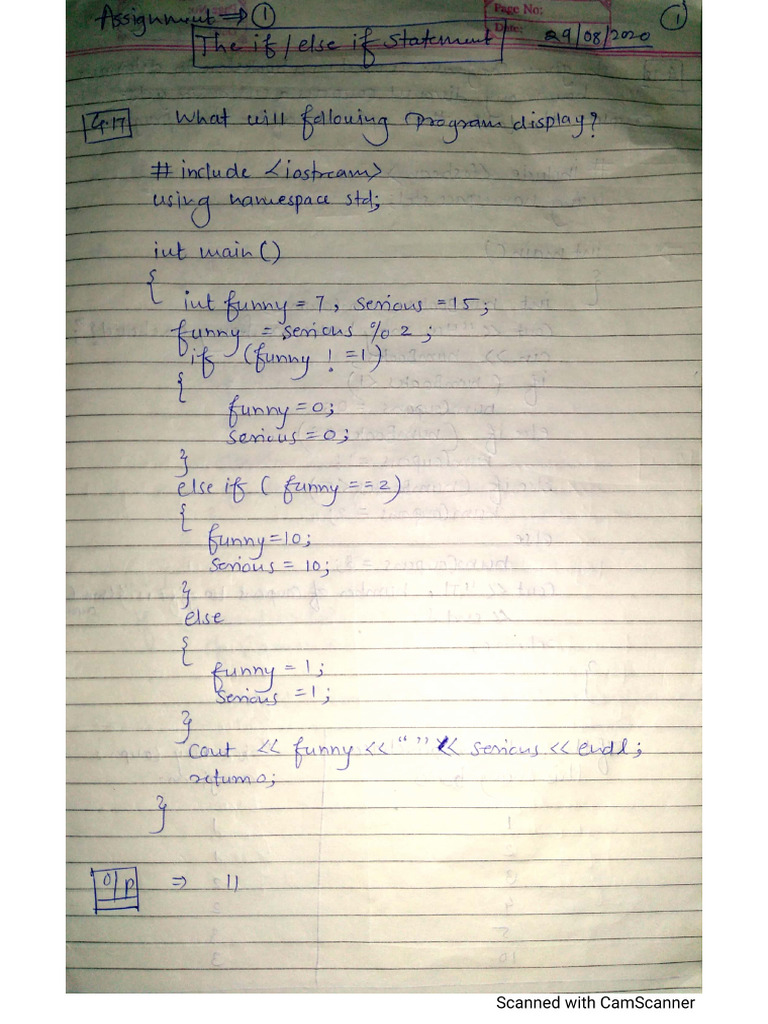 Assignment ⇒ ①
Page No:
①
Date: 29/08/2020
The if / else if Statement
4.17 What will following Program display?
# include <iostream>
using namespace std;
int main ()
{
int funny = 7, serious = 15;
funny = serious % 2;
if (funny ! = 1)
{
funny = 0;
serious = 0;
}
else if ( funny == 2)
{
funny = 10;
serious = 10;
}
else
{
funny = 1;
serious = 1;
}
cout << funny << " " << serious << endl;
return 0;
}
O/P ⇒ 11
Scanned with CamScanner